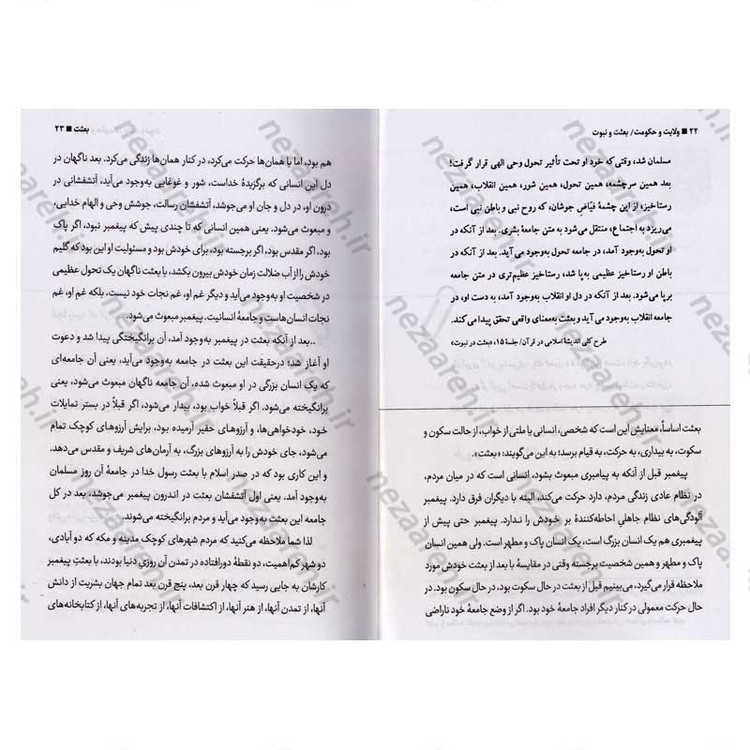 ۲۲ ■ ولایت و حکومت/ بعثت و نبوت
مسلمان شد، وقتی که خود او تحت تأثیر تحول وحی الهی قرار گرفت؛
بعد همین سرچشمه، همین تحول، همین شور، همین انقلاب، همین
رستاخیز، از این چشمهٔ فیّاضِ جوشان، که روح نبی و باطن نبی است،
می‌ریزد به اجتماع، منتقل می‌شود به متن جامعهٔ بشری. بعد از آنکه در
او تحول به‌وجود آمد، در جامعه تحول به‌وجود می‌آید. بعد از آنکه در
باطن او رستاخیز عظیمی به‌پا شد، رستاخیز عظیم‌تری در متن جامعه
برپا می‌شود. بعد از آنکه در دل او انقلاب به‌وجود آمد، به دست او، در
جامعه انقلاب به‌وجود می‌آید و بعثت به‌معنای واقعی تحقق پیدا می‌کند.
طرح کلی اندیشهٔ اسلامی در قرآن/ جلسهٔ ۱۵؛ «بعثت در نبوت»
بعثت اساساً، معنایش این است که شخصی، انسانی یا ملتی از خواب، از حالت سکون و
سکوت، به بیداری، به حرکت، به قیام برسد؛ به این می‌گویند: «بعثت».
پیغمبر قبل از آنکه به پیامبری مبعوث بشود، انسانی است که در میان مردم،
در نظام عادی زندگی مردم، دارد حرکت می‌کند، البته با دیگران فرق دارد. پیغمبر
آلودگی‌های نظام جاهلیِ احاطه‌کنندهٔ بر خودش را ندارد. پیغمبر حتی پیش از
پیغمبری هم یک انسان بزرگ است، یک انسان پاک و مطهر است. ولی همین انسان
پاک و مطهر و همین شخصیت برجسته وقتی در مقایسهٔ با بعد از بعثت خودش مورد
ملاحظه قرار می‌گیرد، می‌بینیم قبل از بعثت در حال سکوت بود، در حال سکون بود. در
حال حرکت معمولی در کنار دیگر افراد جامعهٔ خود بود. اگر از وضع جامعهٔ خود ناراضی
بعثت ■ ۲۳
هم بود، اما با همان‌ها حرکت می‌کرد، در کنار همان‌ها زندگی می‌کرد. بعد ناگهان در
دل این انسانی که برگزیدهٔ خداست، شور و غوغایی به‌وجود می‌آید، آتشفشانی در
درون او، در دل و جان او می‌جوشد، آتشفشان رسالت، جوشش وحی و الهام خدایی،
و مبعوث می‌شود. یعنی همین انسانی که تا چندی پیش که پیغمبر نبود، اگر پاک
بود، اگر مقدس بود، اگر برجسته بود، برای خودش بود و مسئولیت او این بود که گلیم
خودش را از آب ضلالت زمان خودش بیرون بکشد، با بعثت ناگهان یک تحول عظیمی
در شخصیت او به‌وجود می‌آید و دیگر غم او، غم نجات خود نیست، بلکه غم او، غم
نجات انسان‌هاست و جامعهٔ انسانیت. پیغمبر مبعوث می‌شود.
..بعد از آنکه بعثت در پیغمبر به‌وجود آمد، آن برانگیختگی پیدا شد و دعوت
او آغاز شد؛ درحقیقت این بعثت در جامعه به‌وجود می‌آید، یعنی آن جامعه‌ای
که یک انسان بزرگی در او مبعوث شده، آن جامعه ناگهان مبعوث می‌شود، یعنی
برانگیخته می‌شود. اگر قبلاً خواب بود، بیدار می‌شود، اگر قبلاً در بستر تمایلات
خود، خودخواهی‌ها، و آرزوهای حقیر آرمیده بود، برایش آرزوهای کوچک تمام
می‌شود، جای خودش را به آرزوهای بزرگ، به آرمان‌های شریف و مقدس می‌دهد.
و این کاری بود که در صدر اسلام با بعثت رسول خدا در جامعهٔ آن روز مسلمان
به‌وجود آمد. یعنی اول آتشفشان بعثت در اندرون پیغمبر می‌جوشد، بعد در کل
جامعه این بعثت به‌وجود می‌آید و مردم برانگیخته می‌شوند.
لذا شما ملاحظه می‌کنید که مردم شهرهای کوچک مدینه و مکه که دو آبادی،
دو شهر کم‌اهمیت، دو نقطهٔ دورافتاده در تمدن آن روزی دنیا بودند، با بعثتِ پیغمبر
کارشان به جایی رسید که چهار قرن بعد، پنج قرن بعد تمام جهان بشریت از دانش
آنها، از تمدن آنها، از هنر آنها، از اکتشافات آنها، از تجربه‌های آنها، از کتابخانه‌های
nezaareh.ir